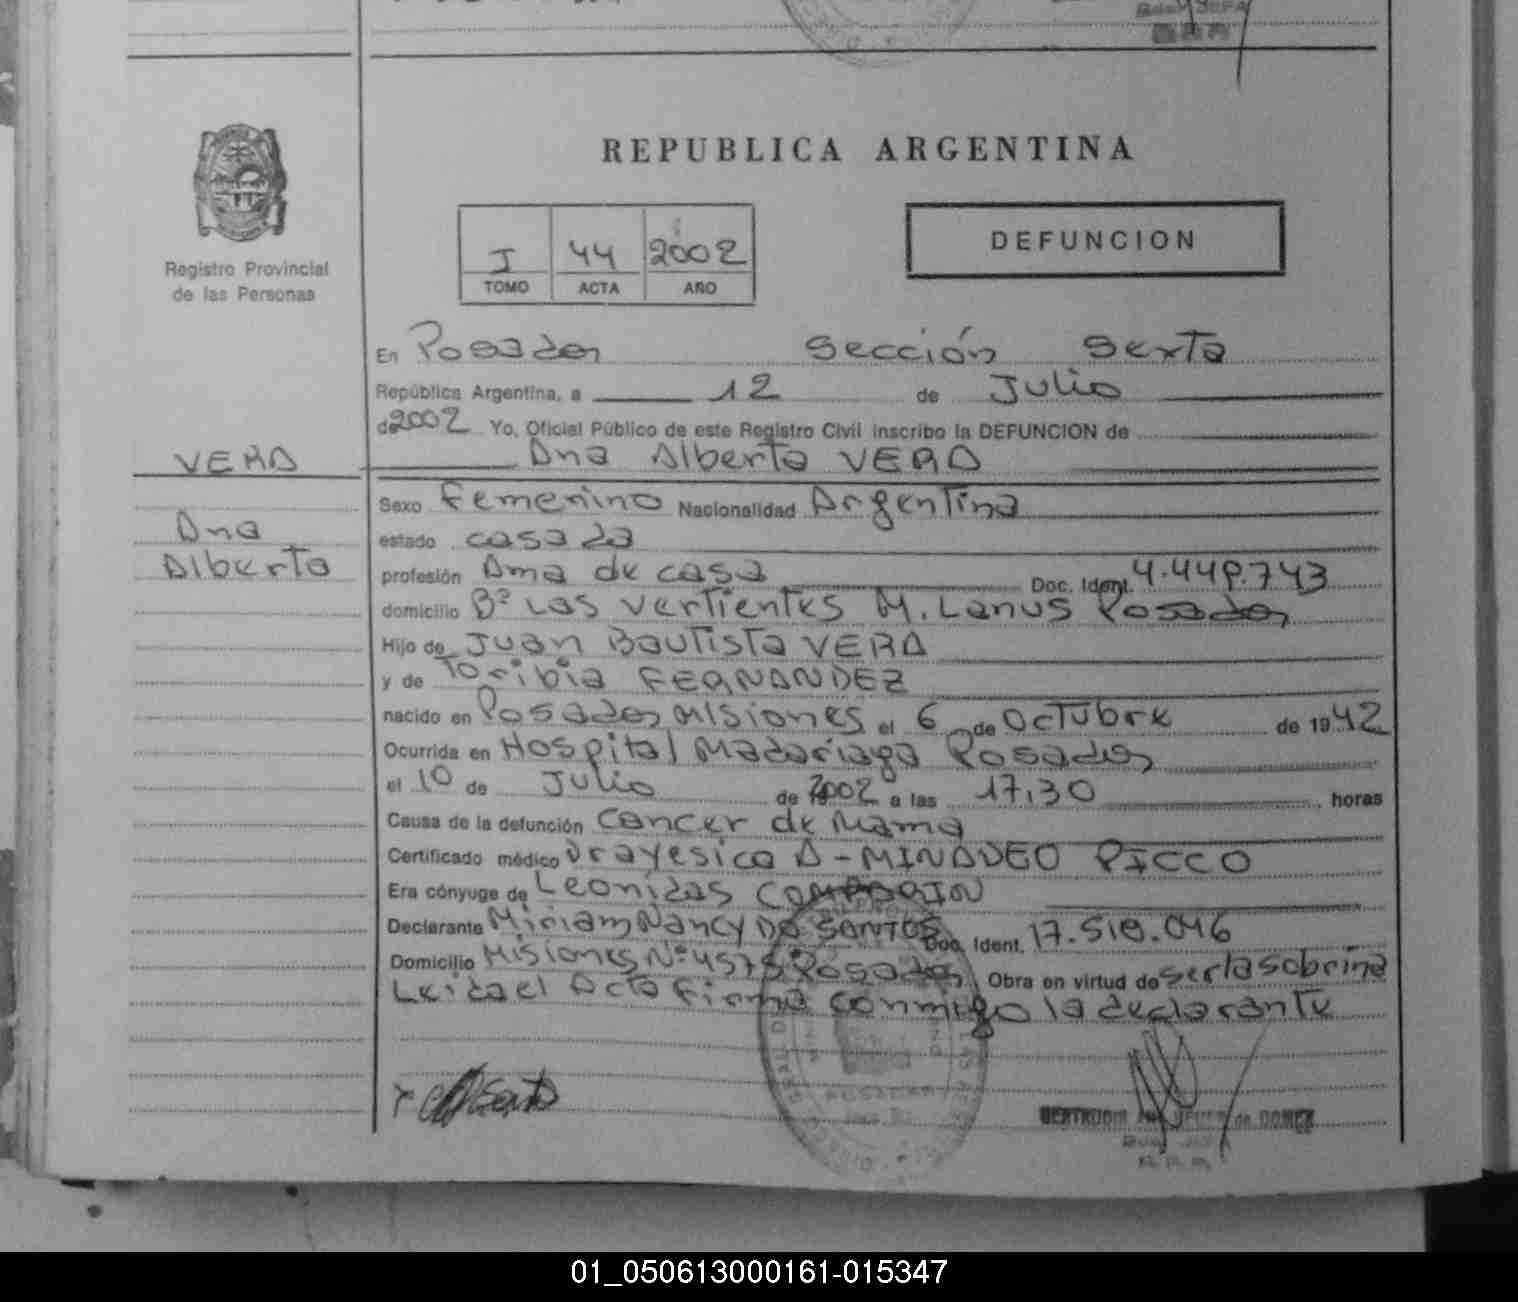 REPUBLICA ARGENTINA
Registro Provincial
de las Personas
I 44 2002
TOMO ACTA AÑO
DEFUNCION
En Posadas Sección Sexta
República Argentina, a 12 de Julio
de 2002 Yo, Oficial Público de este Registro Civil inscribo la DEFUNCION de
VERA
Ana Alberta VERA
Ana
Alberta
Sexo Femenino Nacionalidad Argentina
estado casada
profesión Ama de casa Doc. Ident. 4.449.743
domicilio Bº Las Vertientes M. Lanus Posadas
Hijo de Juan Bautista VERA
y de Toribia FERNANDEZ
nacido en Posadas Misiones el 6 de Octubre de 1942
Ocurrida en Hospital Madariaga Posadas
el 10 de Julio de 2002 a las 17,30 horas
Causa de la defunción Cancer de Mama
Certificado médico Dra Yesica A - MINADEO PICCO
Era cónyuge de Leonidas
Declarante Miriam Nancy DO SANTOS Doc. Ident. 17.510.046
Domicilio Misiones Nº 4575 Posadas Obra en virtud de ser la sobrina
Leida el Acta firma conmigo la declarante
POSADAS
GERTRUDIS de GOMEZ
01_050613000161-015347